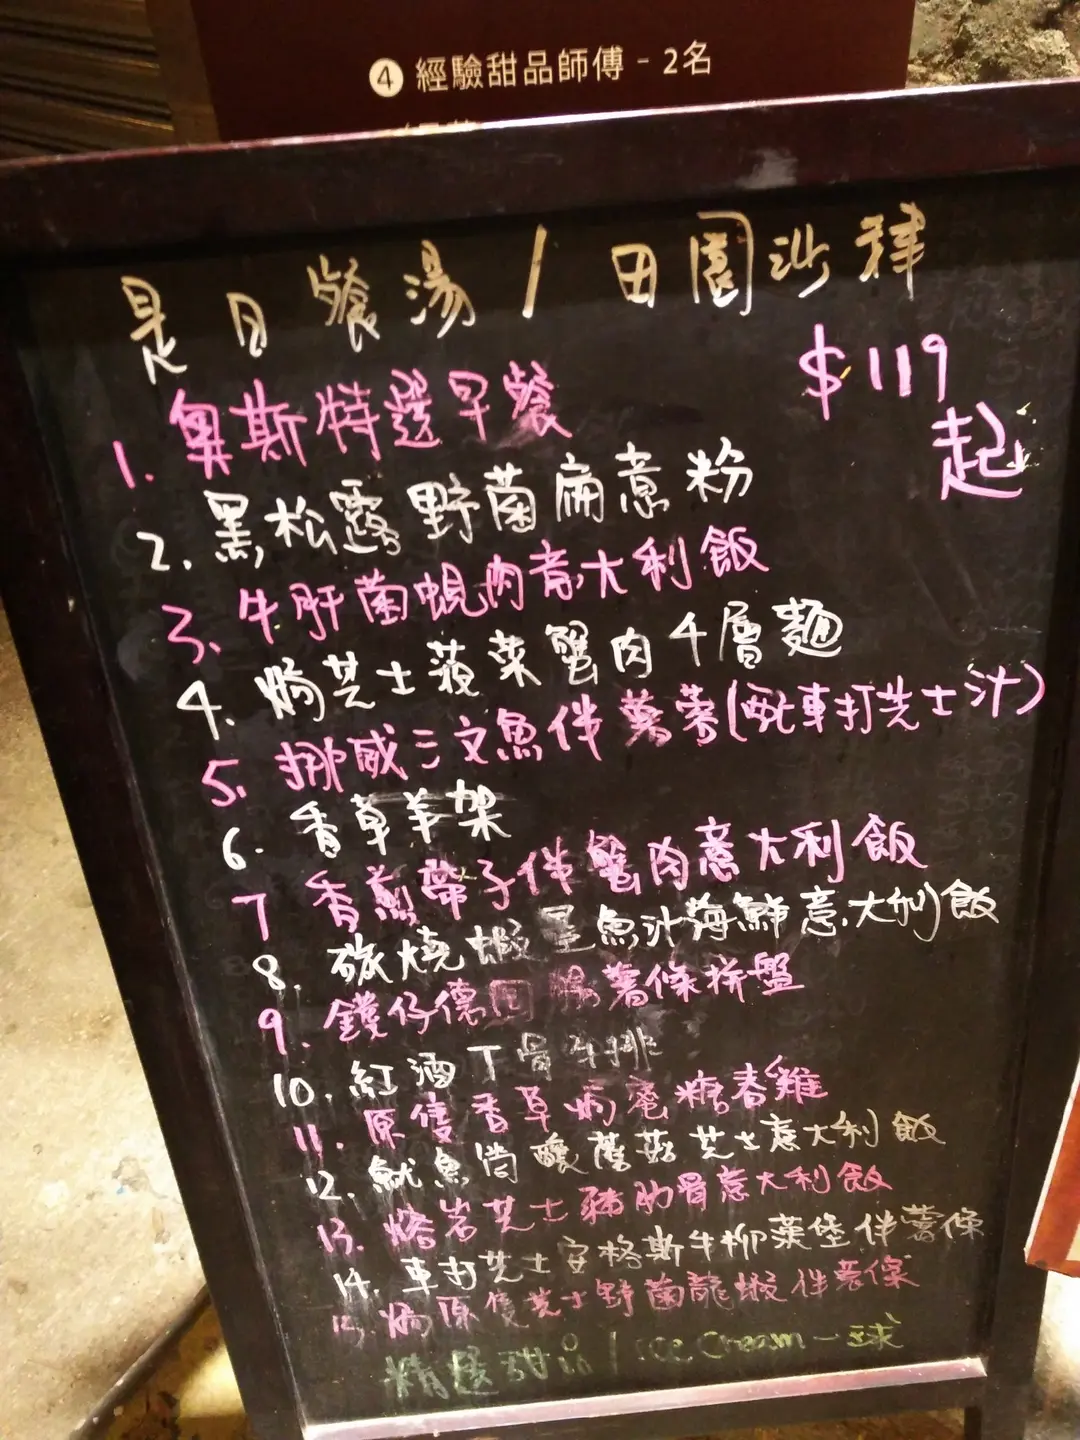 4 經驗甜品師傅 - 2名
是日餐湯 / 田園沙律
$119
起
1. 奧斯特選早餐
2. 黑松露野菌扁意粉
3. 牛肝菌蜆肉意大利飯
4. 焗芝士菠菜蟹肉千層麵
5. 挪威三文魚伴薯蓉(配車打芝士汁)
6. 香草羊架
7 香煎帶子伴蟹肉意大利飯
8. 碳燒蝦墨魚汁海鮮意大利飯
9. 鑊仔德國腸薯條拼盤
10. 紅酒丁骨牛排
11. 原隻香草焗春雞
12. 魷魚筒釀蘑菇芝士意大利飯
13. 熔岩芝士豬肋骨意大利飯
14. 車打芝士安格斯牛柳漢堡伴薯條
15. 焗原隻芝士野菌龍蝦伴薯條
精選甜品 / Ice cream 一球